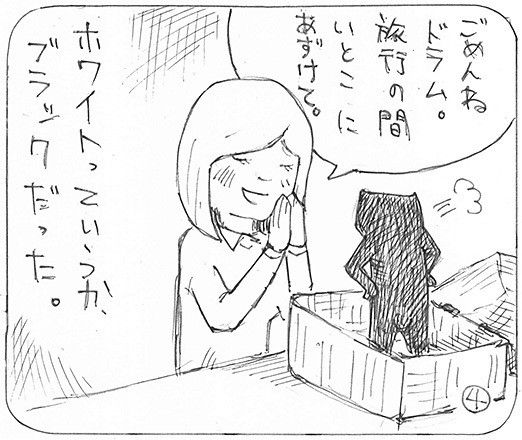 ごめんね
ドラム。
旅行の間
いとこに
あずけて。
ホワイトっていうか、
ブラックだった。
④